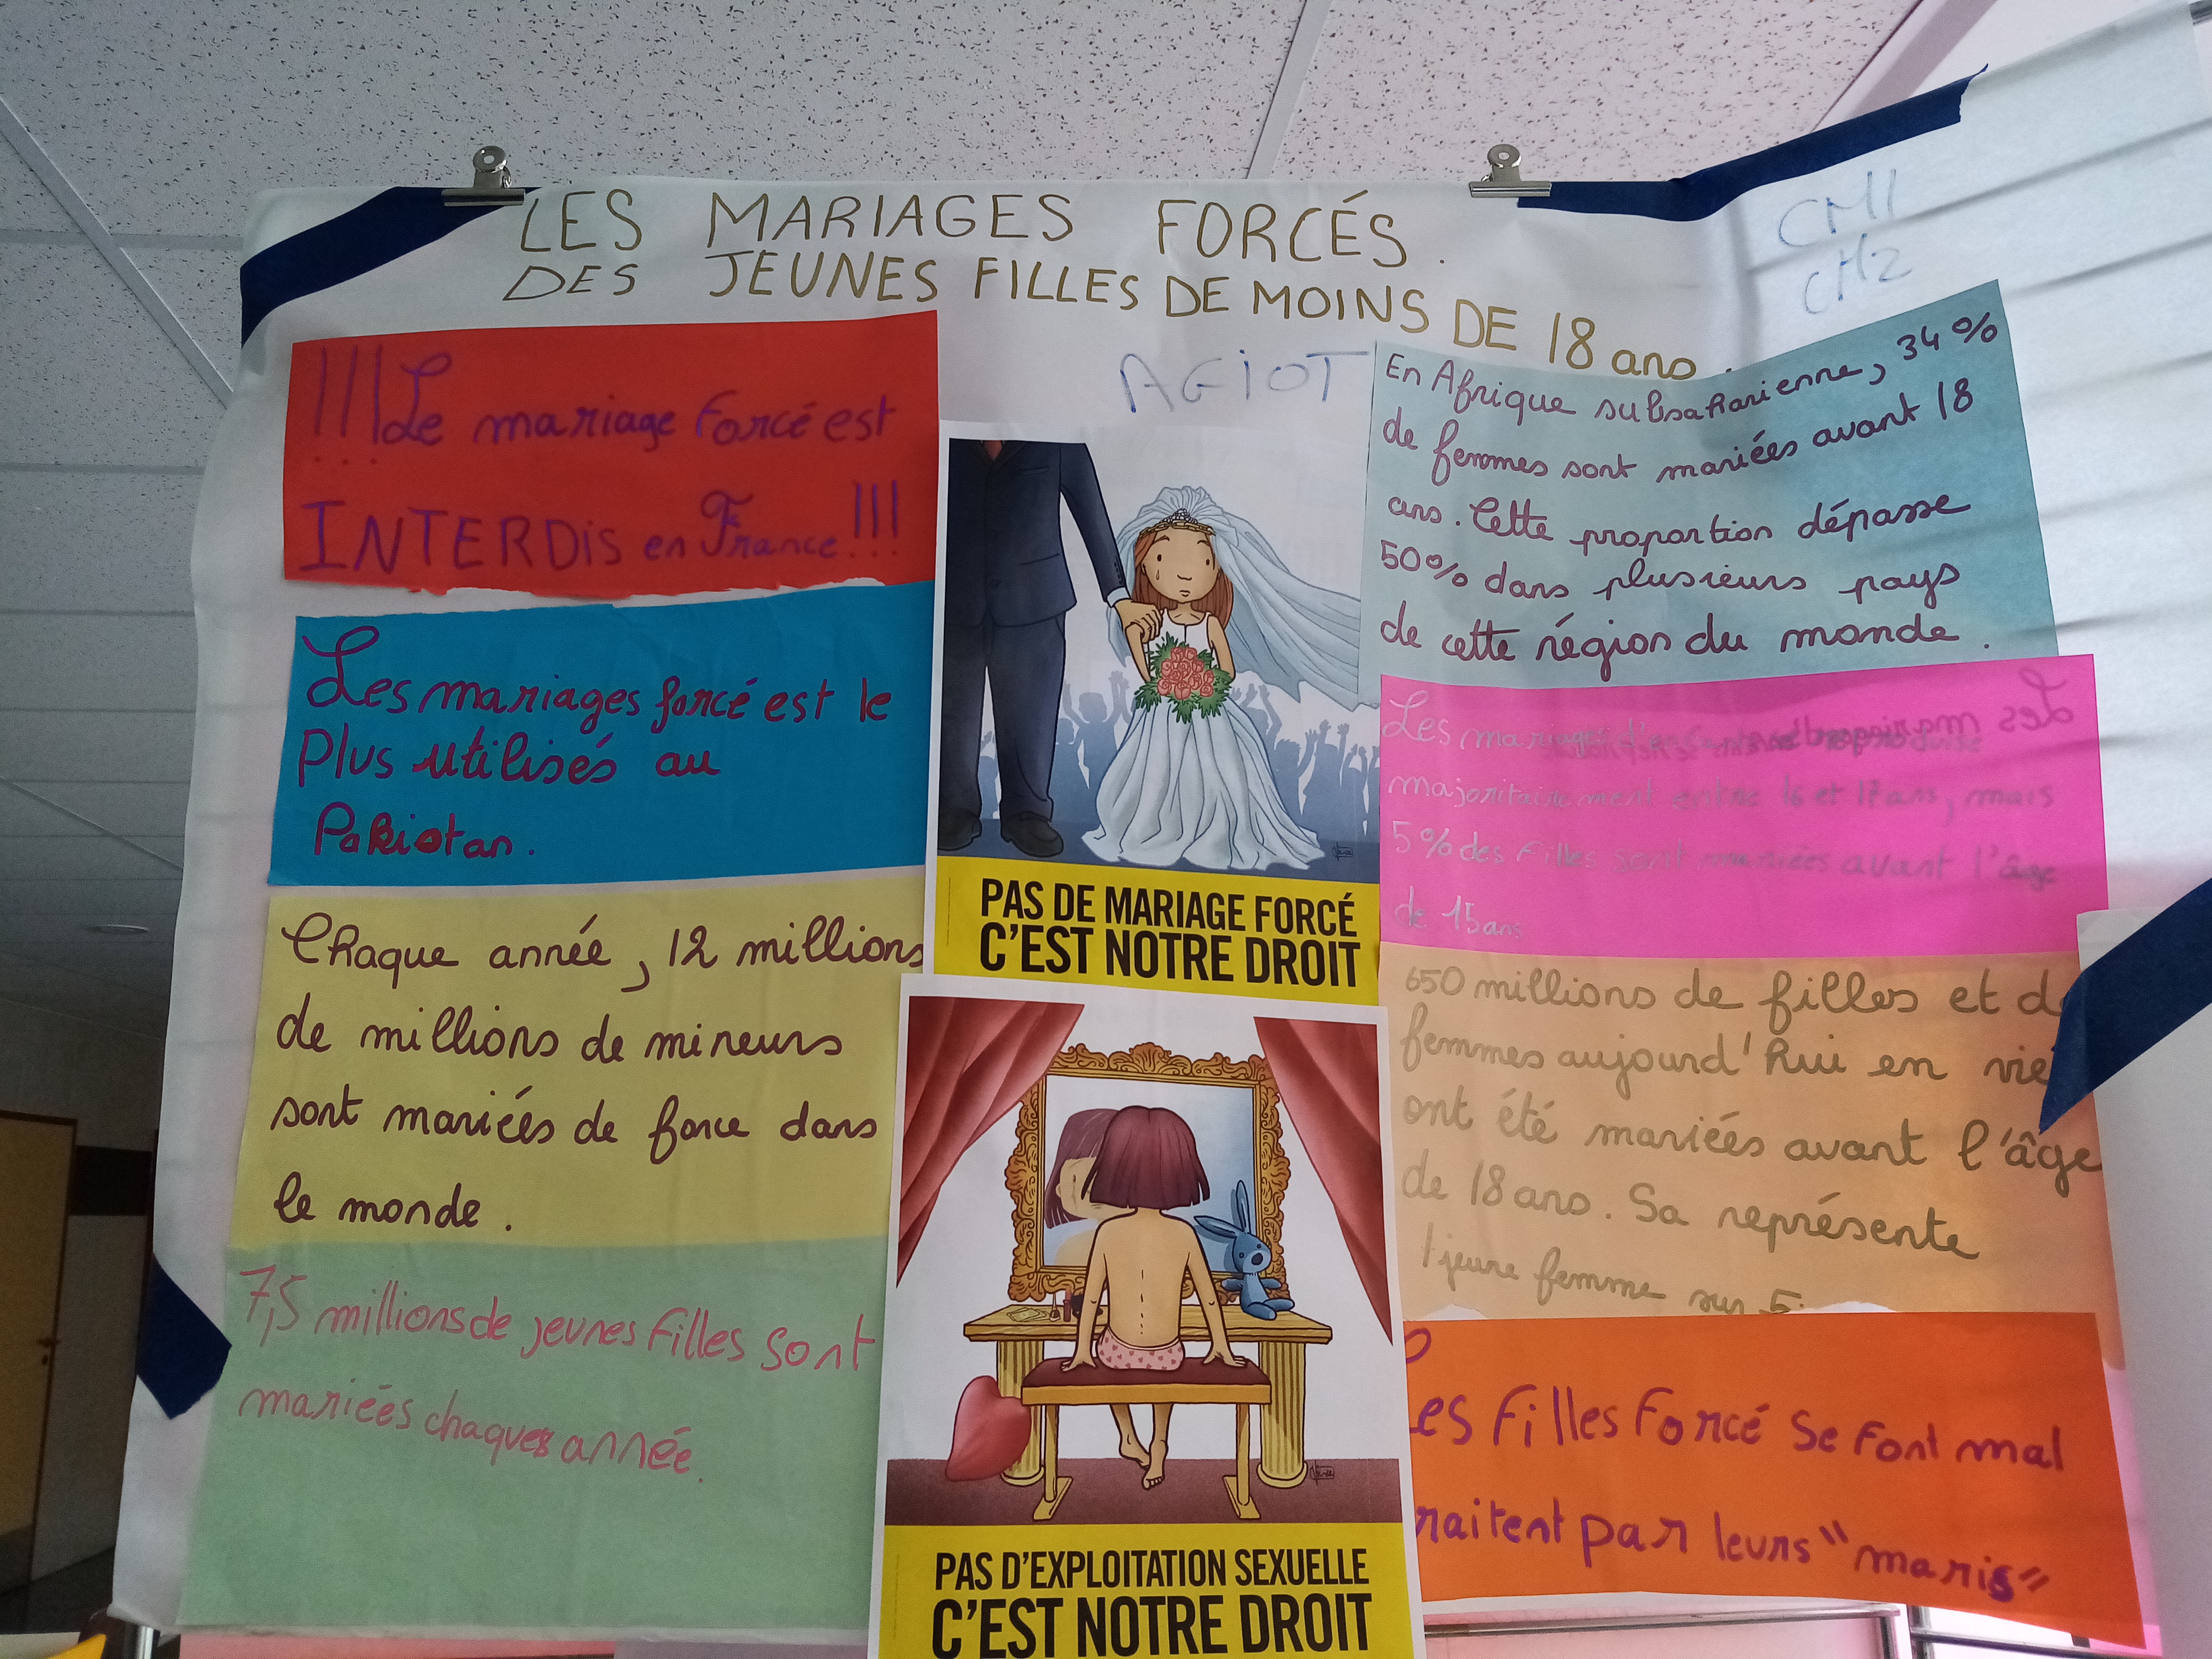 LES MARIAGES FORCÉS.
DES JEUNES FILLES DE MOINS DE 18 ans.
CM1
CM2
AGIOT
!!! Le mariage forcé est
INTERDIS en France !!!
Les mariages forcé est le
plus utilisés au
Pakistan.
Chaque année, 12 millions
de millions de mineurs
sont mariéés de force dans
le monde.
7,5 millions de jeunes filles sont
mariéés chaques année.
PAS DE MARIAGE FORCÉ
C'EST NOTRE DROIT
PAS D'EXPLOITATION SEXUELLE
C'EST NOTRE DROIT
En Afrique subsaharienne, 34%
de femmes sont mariées avant 18
ans. Cette proportion dépasse
50% dans plusieurs pays
de cette région du monde.
Les mariages
majoritairement entre 16 et 17 ans, mais
5% des filles sont mariées avant l'âge
de 15 ans
650 millions de filles et d
femmes aujourd'hui en vie
ont été mariéés avant l'âge
de 18 ans. Sa représente
1 jeune femme sur 5.
es filles forcé se font mal
raitent par leurs "maris"